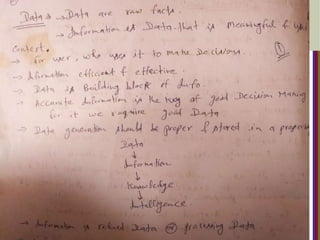 Data → → Data are raw facts.
→ Information is Data that is meaningful &
Context.
→ for user, who uses it to make Decisions.
①
→ Information efficient & effective.
→ Data is Building block of Info.
→ Accurate Information is the key of good Decision Making
for it we require good Data
→ Data generation should be proper & stored in a proper
Data
↓
Information
↓
Knowledge
↓
Intelligence
→ Information is refined Data or processing Data